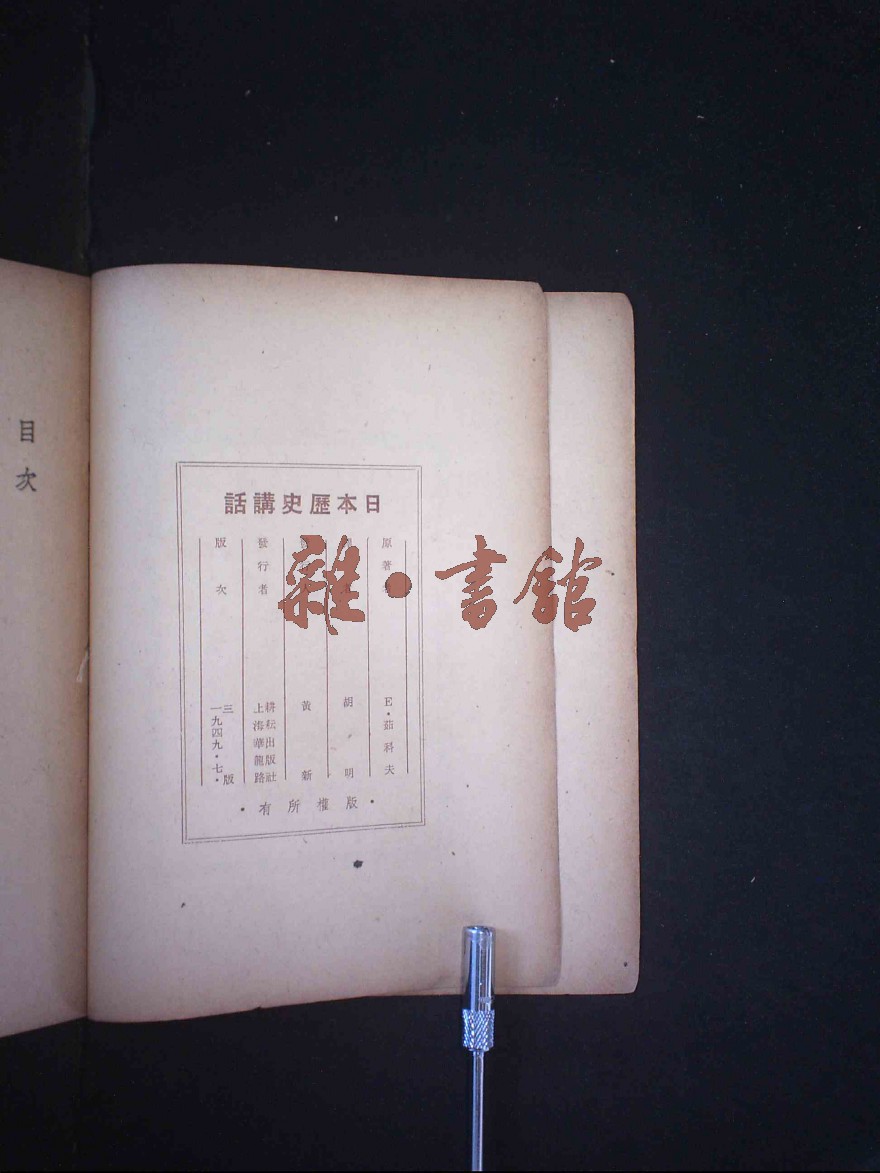 目次
日本歷史講話
原著
E·茹科夫
胡明
黃新
發行者
耕耘出版社
上海華龍路
版次
三版
一九四九·七·
·版權所有·
雜·書館